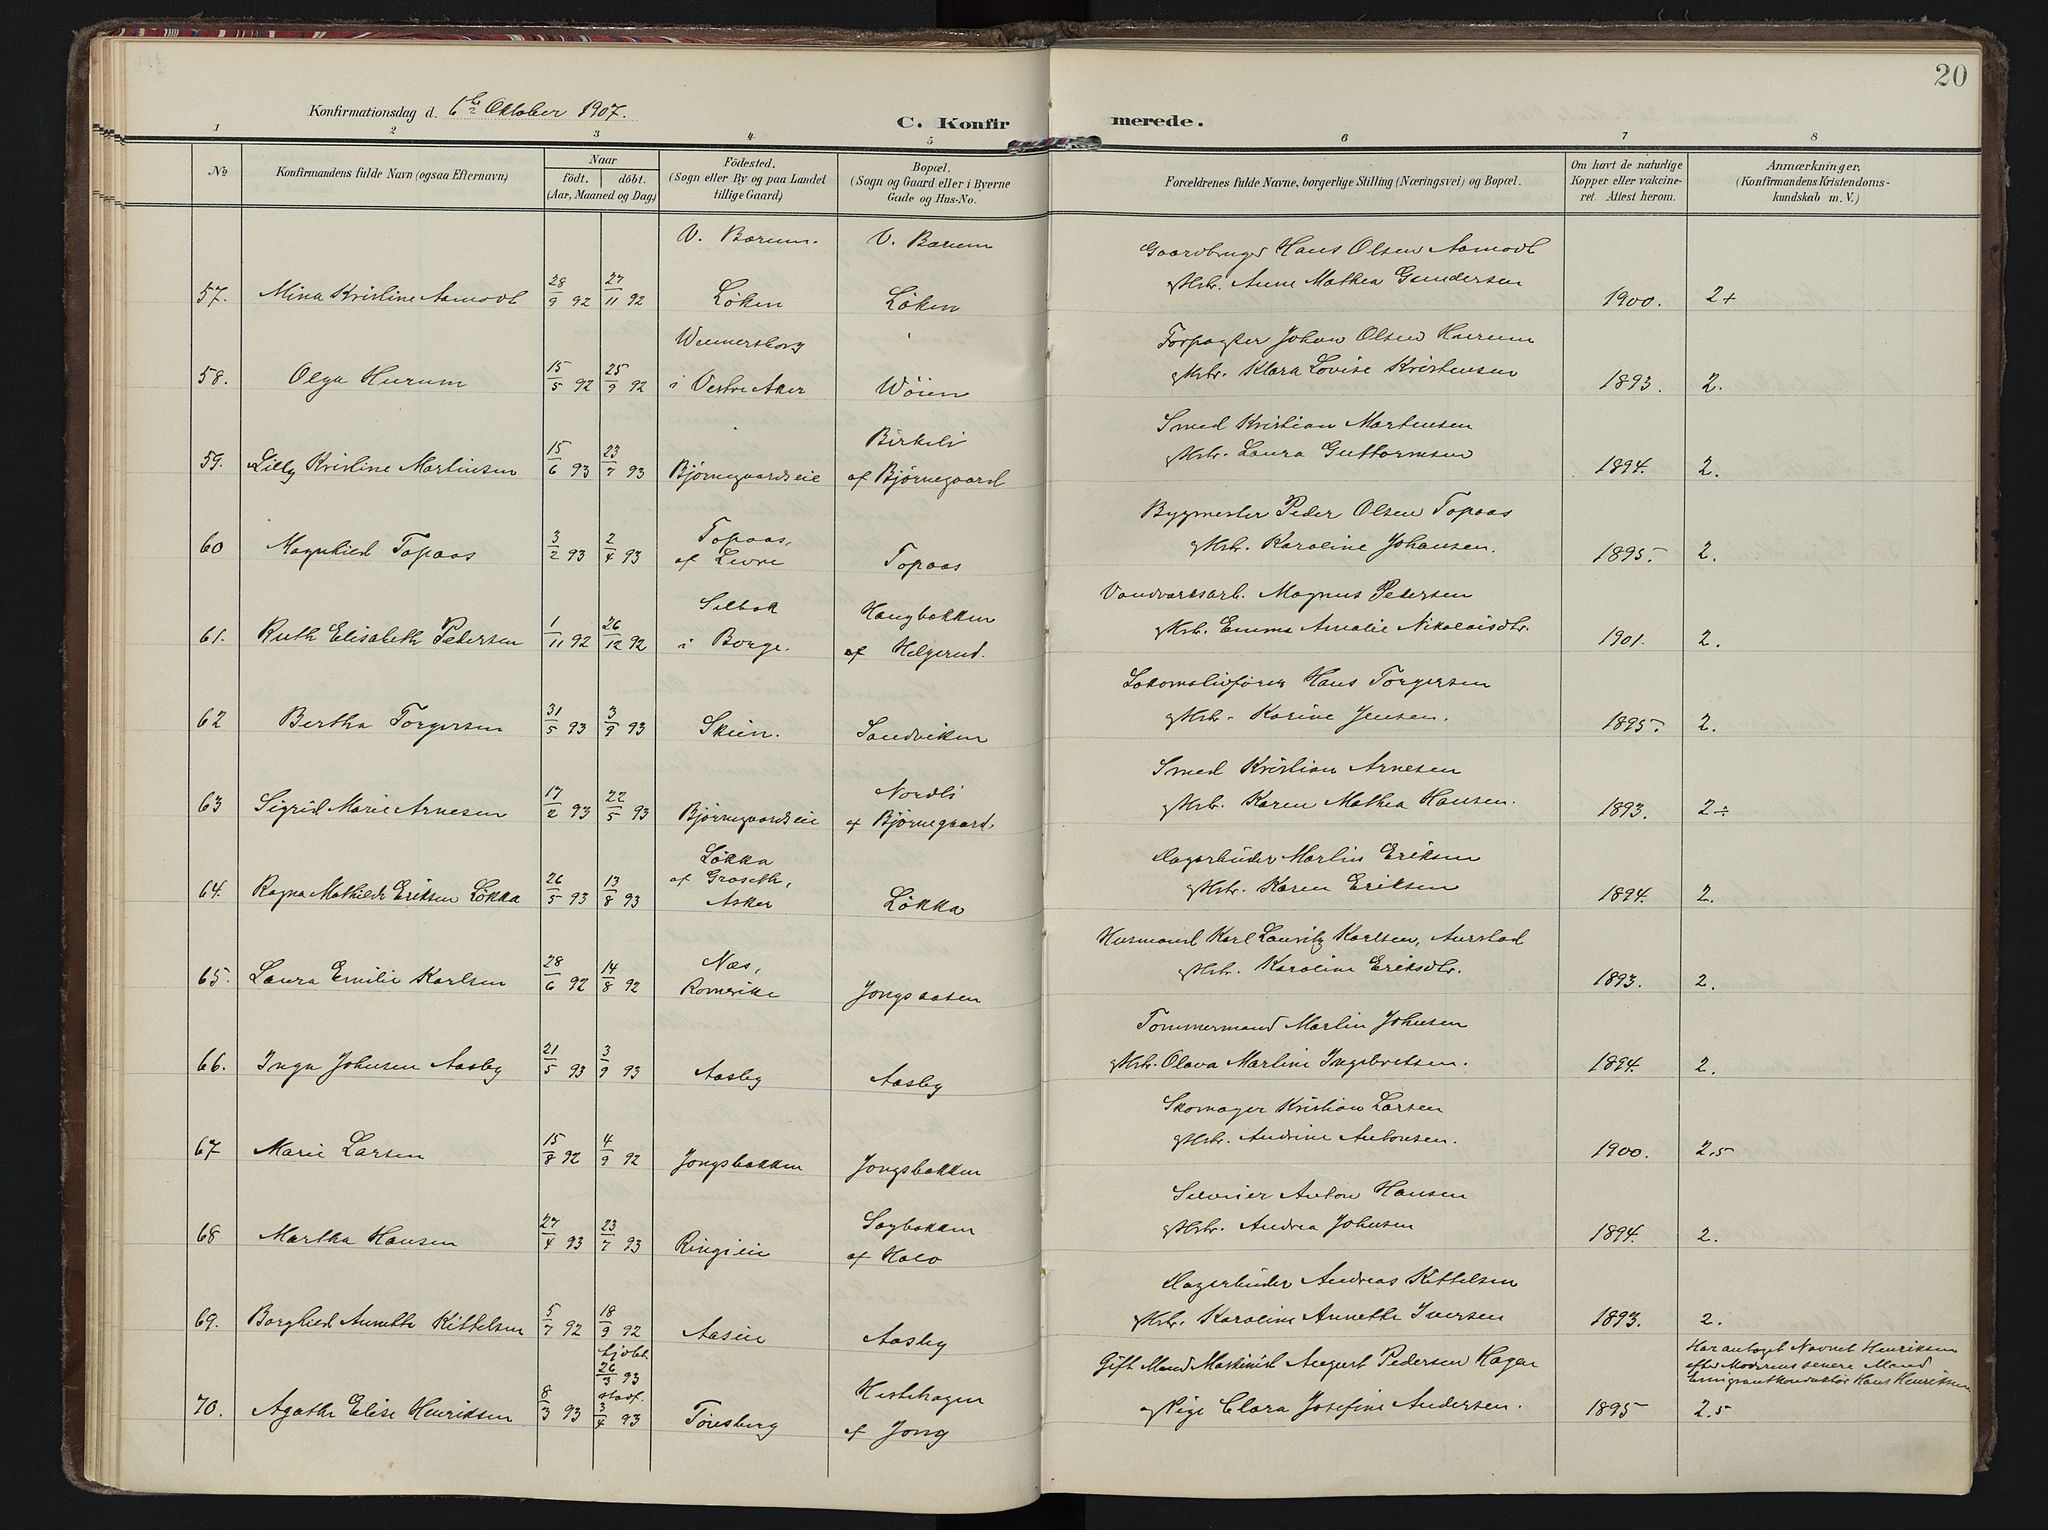 20
Konfirmationsdag d. 6te Oktober 1907.
C. Konfirmerede.
1 2 3 4 5 6 7 8
No
Konfirmandens fulde Navn (ogsaa Efternavn)
Naar
födt. döbt.
(Aar, Maaned og Dag)
Födested.
(Sogn eller By og paa Landet
tillige Gaard)
Bopæl.
(Sogn og Gaard eller i Byerne
Gade og Hus-No.
Forældrenes fulde Navne, borgerlige Stilling (Næringsvei) og Bopæl.
Om havt de naturlige
Kopper eller vakcine-
ret. Attest herom.
Anmærkninger,
(Konfirmandens Kristendoms-
kundskab m. V.)
V. Bærum. V. Bærum Gaardbruger Hans Olsen Aamodt
57. Mina Kristine Aamodt 28/9 92 27/11 92 Løken Løken og Hstr. Anne Mathea Gundersen 1900. 2+
Wilmersborg Forpagter Johan Olsen Hurum
58. Olga Hurum 15/5 92 25/9 92 i Vestre Aker Wøien og Hstr. Klara Lovise Kristensen 1893. 2.
Birkeli Smed Kristian Martensen
59. Lilly Kristine Martinsen 15/6 93 23/7 93 Bjørnegaardseie af Bjørnegaard og Hstr. Laura Guttormsen 1894. 2.
Topaas, Bygmester Peder Olsen Topaas
60 Magnhild Topaas 3/2 93 2/4 93 af Levre Topaas og Hstr. Karoline Johansen. 1895. 2.
Selbak Haugbakken Vandværksarb. Magnus Pedersen
61. Ruth Elisabeth Pedersen 1/11 92 26/12 92 i Borge. af Helgerud. og Hstr. Emma Amalie Nikolaisdtr. 1901. 2.
Lokomotivfører Hans Torgersen
62 Bertha Torgersen 31/5 93 3/9 93 Skien. Sandviken og Hstr. Karine Jensen. 1895. 2.
Nordli Smed Kristian Arnesen
63 Sigrid Marie Arnesen 17/2 93 22/5 93 Bjørnegaardseie af Bjørnegaard. og Hstr. Karen Mathea Hansen. 1893. 2÷
Løkka Dagarbeider Martin Eriksen
64. Ragna Mathilde Eriksen Løkka 26/5 93 13/8 93 af Groseth, Asker Løkka og Hstr. Karen Eriksen 1894. 2.
Næs, Husmand Karl Lauritz Karlsen, Aurstad
65. Laura Emilie Karlsen 28/6 92 14/8 92 Romerike Jongsaasen og Hstr. Karoline Eriksdtr. 1893. 2.
Tømmermand Martin Johnsen
66. Inga Johnsen Aasby 21/5 93 3/9 93 Aasby Aasby og Hstr. Olava Martine Ingebretsen. 1894. 2.
Skomager Kristian Larsen
67 Marie Larsen 15/8 92 4/9 92 Jongsbakken Jongsbakken og Hstr. Andrine Antonsen. 1900. 2,5
Sagbakken Anton Hansen
68 Martha Hansen 27/4 93 23/7 93 Ringieie af Halo og Hstr. Andrea Johnsen 1894. 2.
Dagarbeider Andreas Kittelsen
69. Borghild Annette Kittelsen 5/7 92 18/9 92 Aasen Aasby og Hstr. Karoline Annette Iversen 1893. 2.
hjdbt. 26/3 93 Hestehagen Gift Mand Maskinist August Pedersen Hagen Har antaget Navnet Henriksen
efter Moderens senere Mand
Emigrantkonduktør Hans Henriksen.
70. Agathe Elise Henriksen 8/3 93 stadf. 3/4 93 Tønsberg af Jong og Pige Clara Josefine Andersen. 1895 2.5